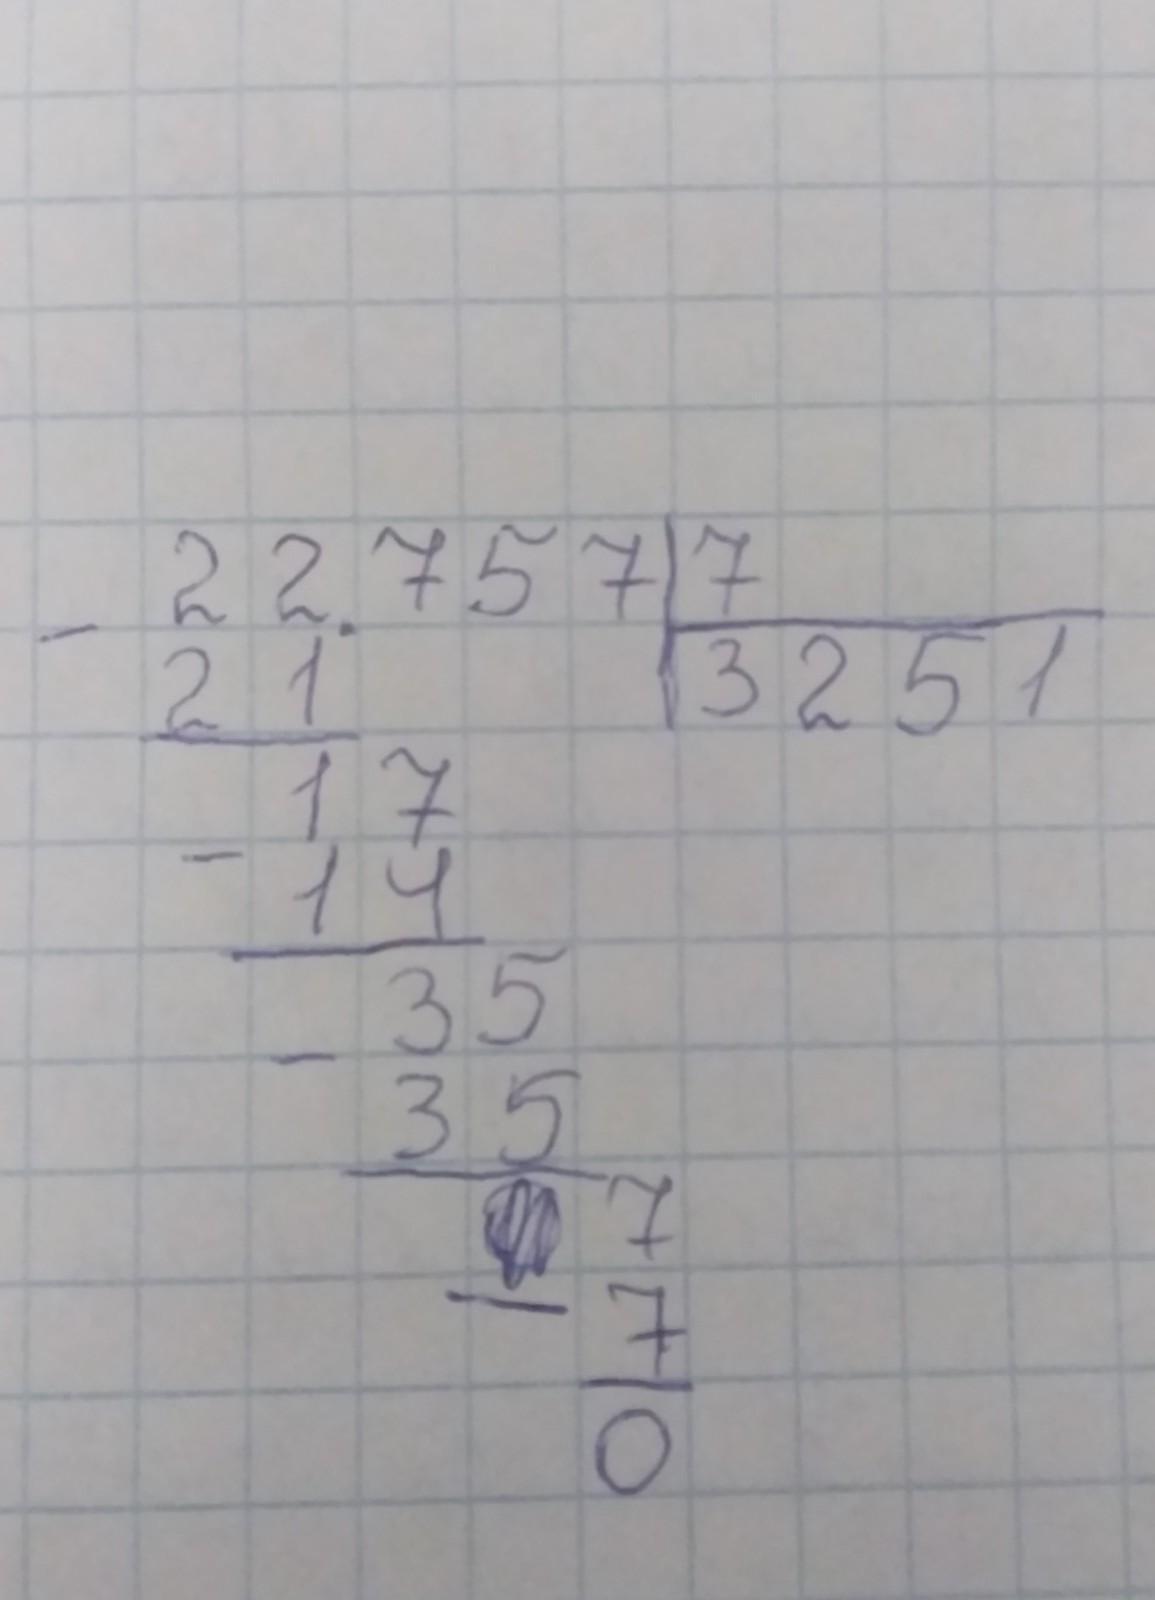 22.757 7
- 21 3251
17
- 14
35
- 35
7
- 7
0